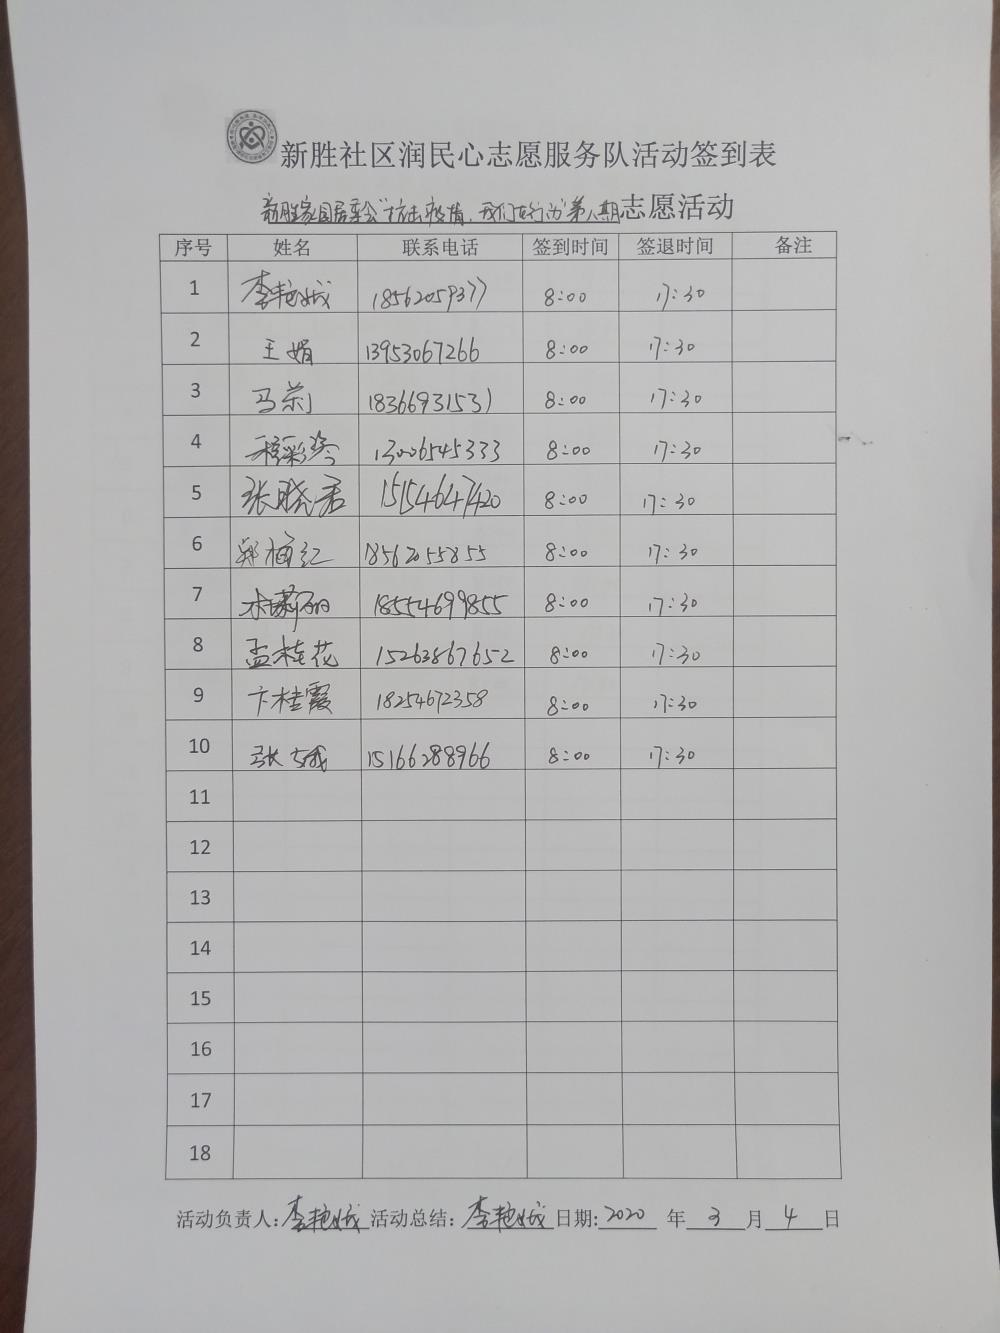 新胜社区润民心志愿服务队活动签到表
新胜家园居委会"抗击疫情,我们在行动"第八期志愿活动
序号 姓名 联系电话 签到时间 签退时间 备注
1 李艳娥 18562059377 8:00 17:30
2 王娟 13953067266 8:00 17:30
3 马莉 18366931531 8:00 17:30
4 程彩玲 13006545333 8:00 17:30
5 张晓君 15154647420 8:00 17:30
6 郑梅红 18562055855 8:00 17:30
7 18554699855 8:00 17:30
8 孟桂花 15263867652 8:00 17:30
9 卞桂霞 18254672358 8:00 17:30
10 张娥 15166288966 8:00 17:30
11
12
13
14
15
16
17
18
活动负责人:李艳娥 活动总结:李艳娥 日期:2020 年 3 月 4 日